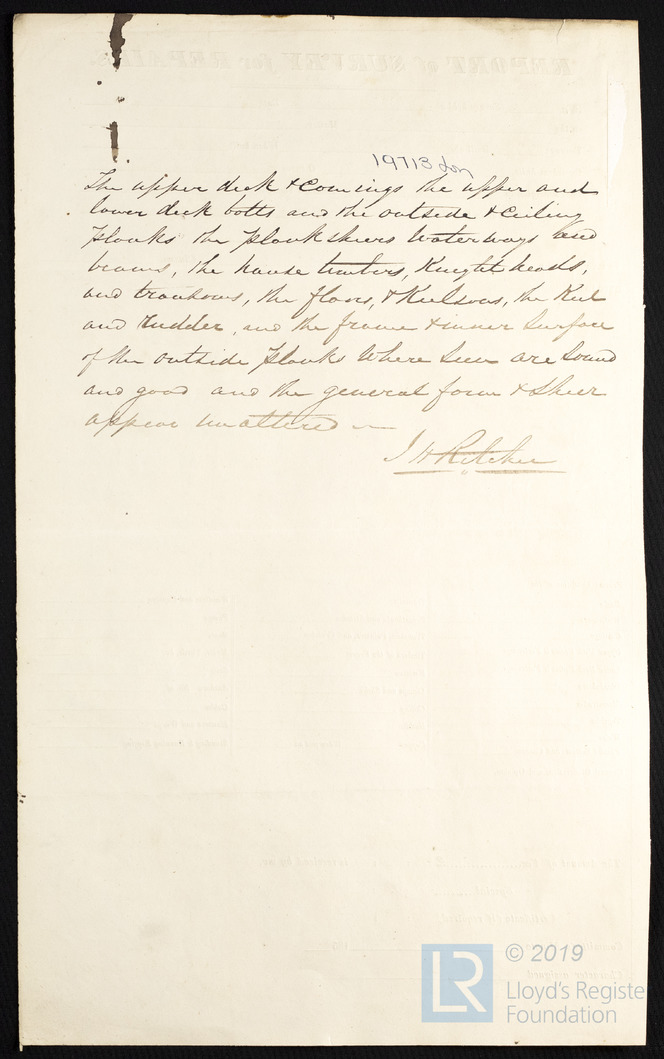 19713 Lon
The upper deck & Comings the upper and
lower deck bolts and the outside & Ceiling
planks the plank sheers Waterways and
beams, the hawse timbers, Knight heads,
and transoms, the floors, & Keelsons, the Keel
and Rudder, and the frame & inner Surface
of the outside planks where seen are Sound
and good and the general form & Sheer
appear unaltered
J H Ritchie
© 2019
LR
Lloyd's Registe
Foundation
REPORT of SURVEY for REPAIRS